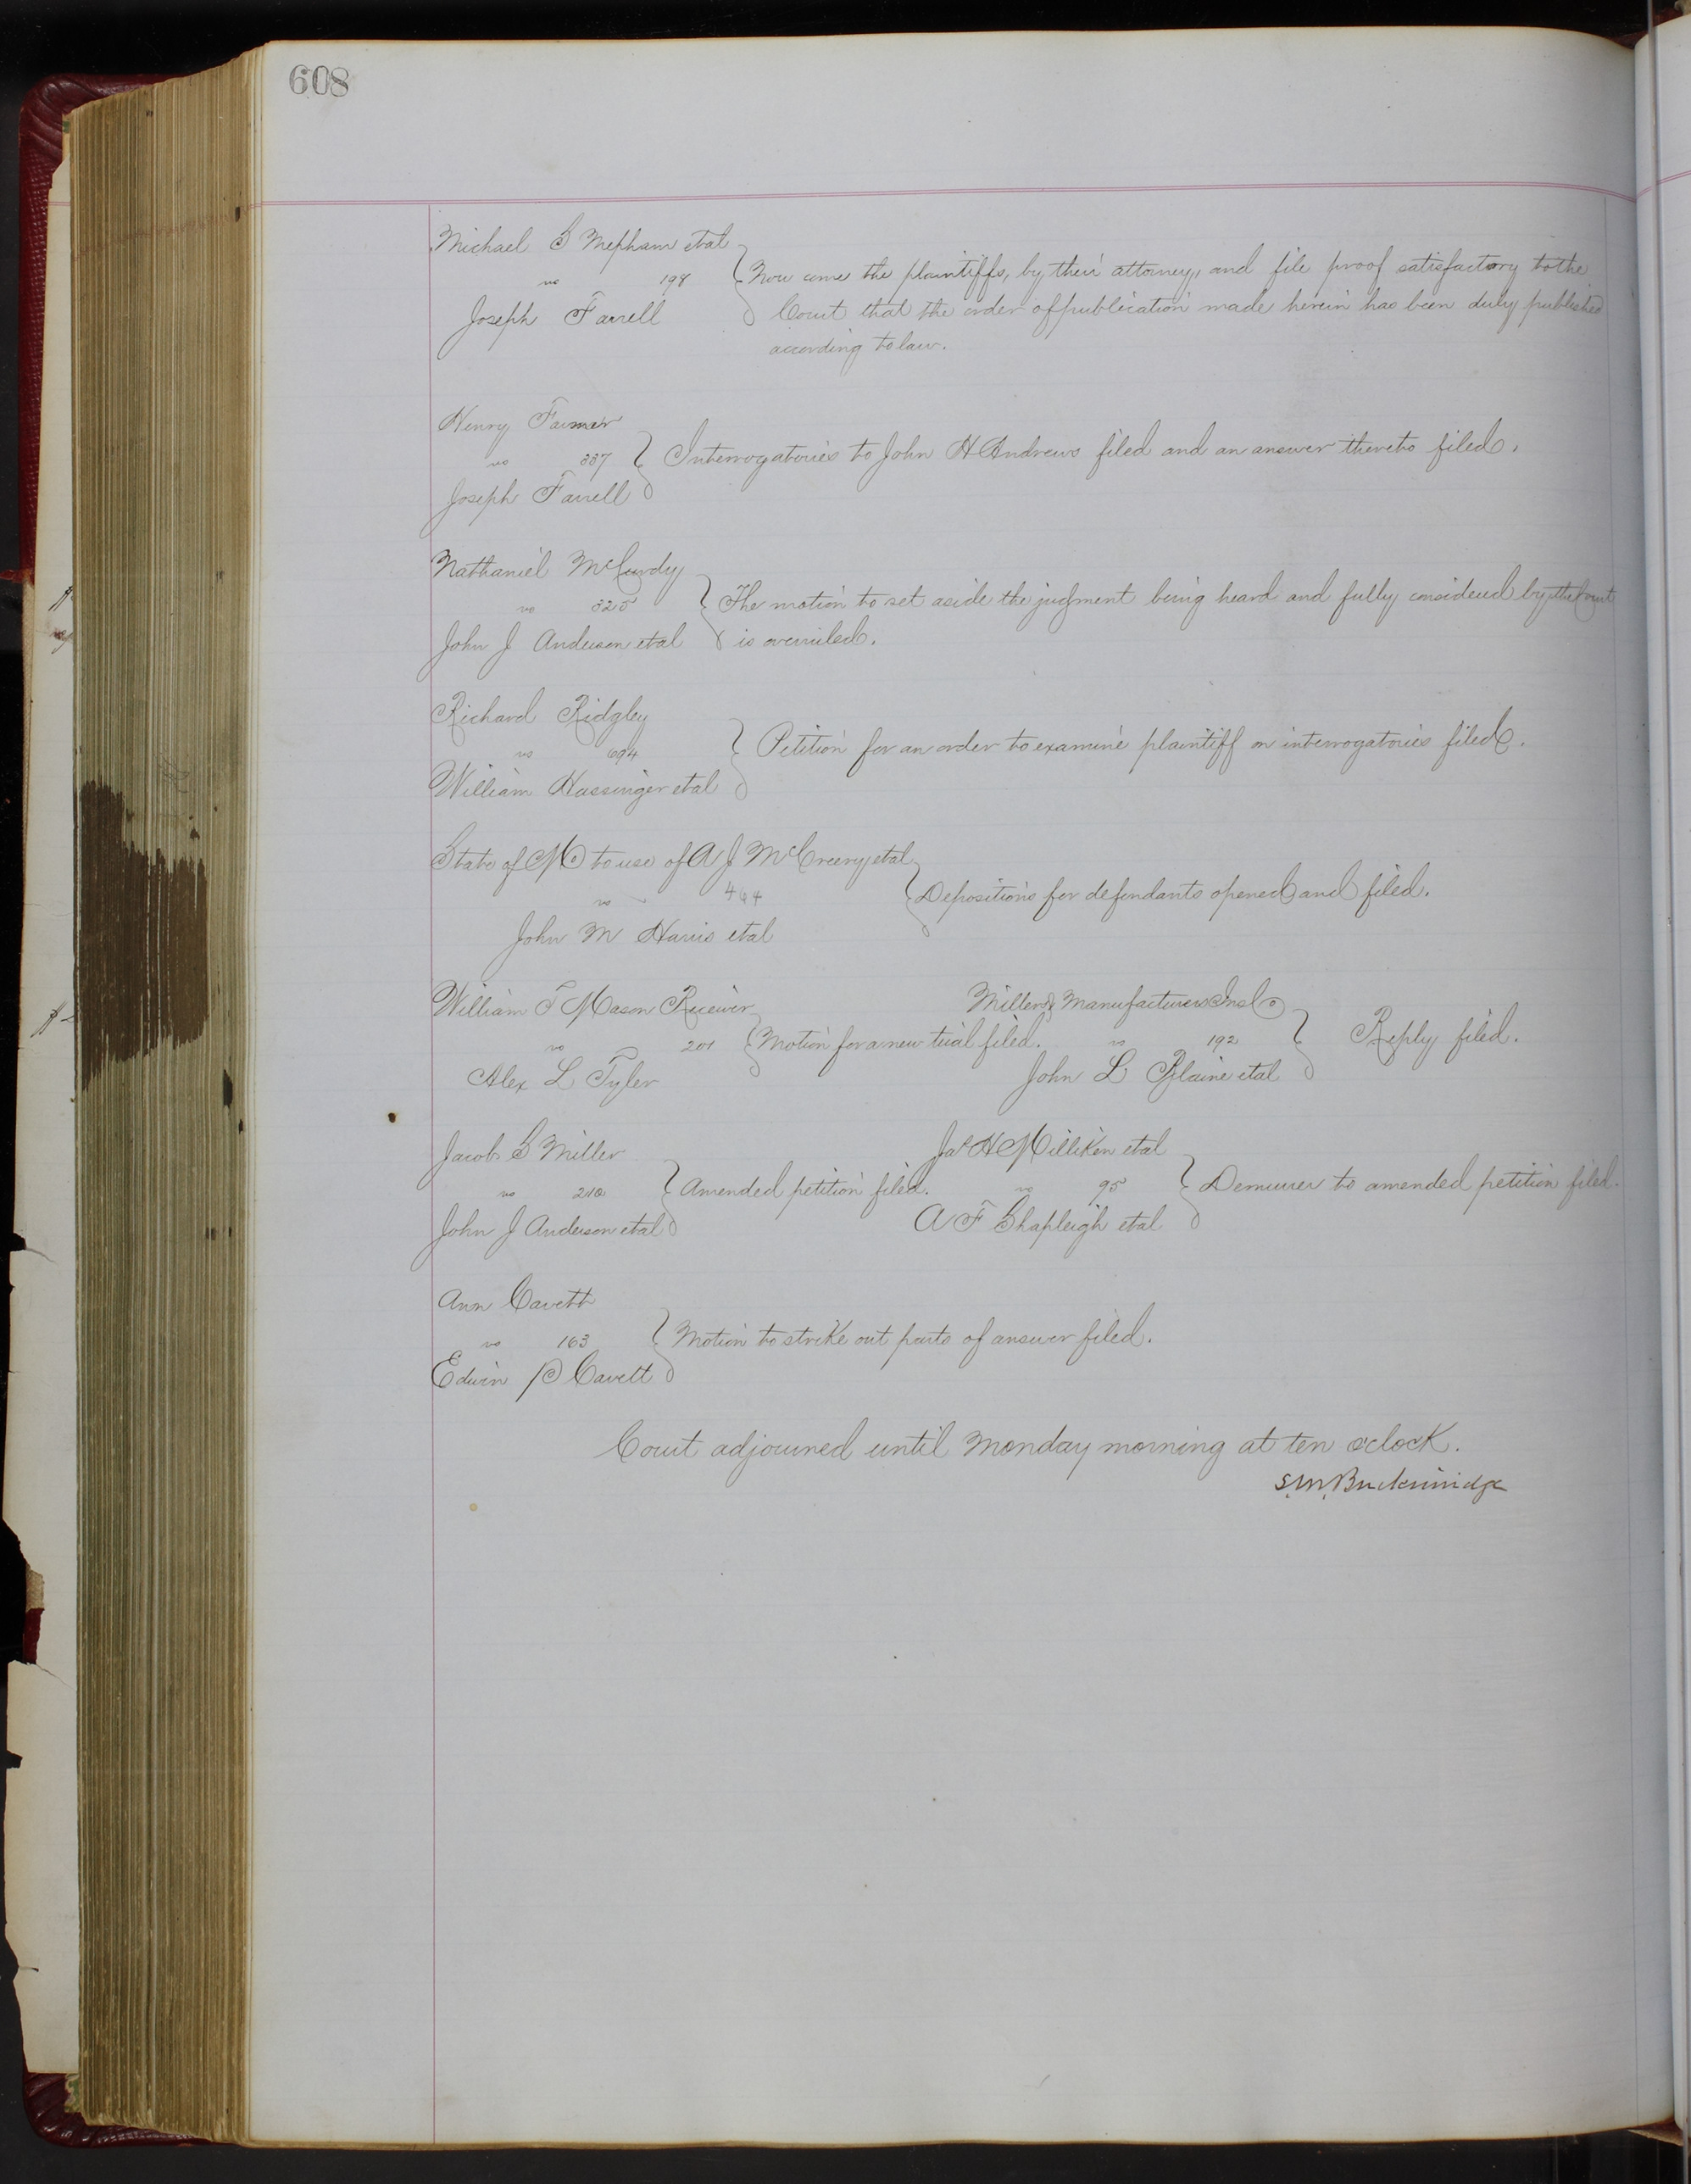 608
Michael G Mepham et al
vs 198
Joseph Farrell
Now come the plaintiffs, by their attorney, and file proof satisfactory to the
Court that the order of publication made herein has been duly published
according to law.
Henry Farmer
vs 337
Joseph Farrell
Interrogatories to John H Andrews filed and an answer thereto filed.
Nathaniel McCurdy
vs 325
John J Anderson et al
The motion to set aside the judgment being heard and fully considered by the Court
is overruled.
Richard Ridgley
vs 694
William Hassinger et al
Petition for an order to examine plaintiff on interrogatories filed.
State of Mo to use of A J McCreery et al
vs 464
John M Harris et al
Depositions for defendants opened and filed.
William T Mason Receiver
vs 201
Alex L Tyler
Motion for a new trial filed.
Millers & Manufacturers Ins Co
vs 192
John L Blaine et al
Reply filed.
Jacob S Miller
vs 210
John J Anderson et al
Amended petition filed.
Jas H Milliken et al
vs 95
A F Shapleigh et al
Demurrer to amended petition filed.
Ann Cavett
vs 163
Edwin P Cavett
Motion to strike out parts of answer filed.
Court adjourned until Monday morning at ten o'clock.
S.M. Breckinridge